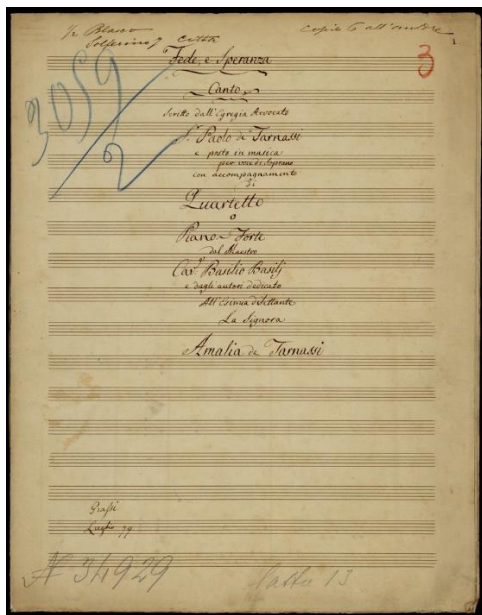 Solferino 7 città
copie 6 all'ombre
1
3
3059/2
Fede, e Speranza
Canto
Scritto dall'Egregio Avvocato
Sr. Paolo de Tarnassi
e posto in musica
per voce di Soprano
con accompagnamento
Di
Quartetto
o
Piano-Forte
dal Maestro
Cavr. Basilio Basilj
e dagli autori dedicato
All'Esimia dilettante
La Signora
Amalia de Tarnassi
Luglio 79
N 34929
13